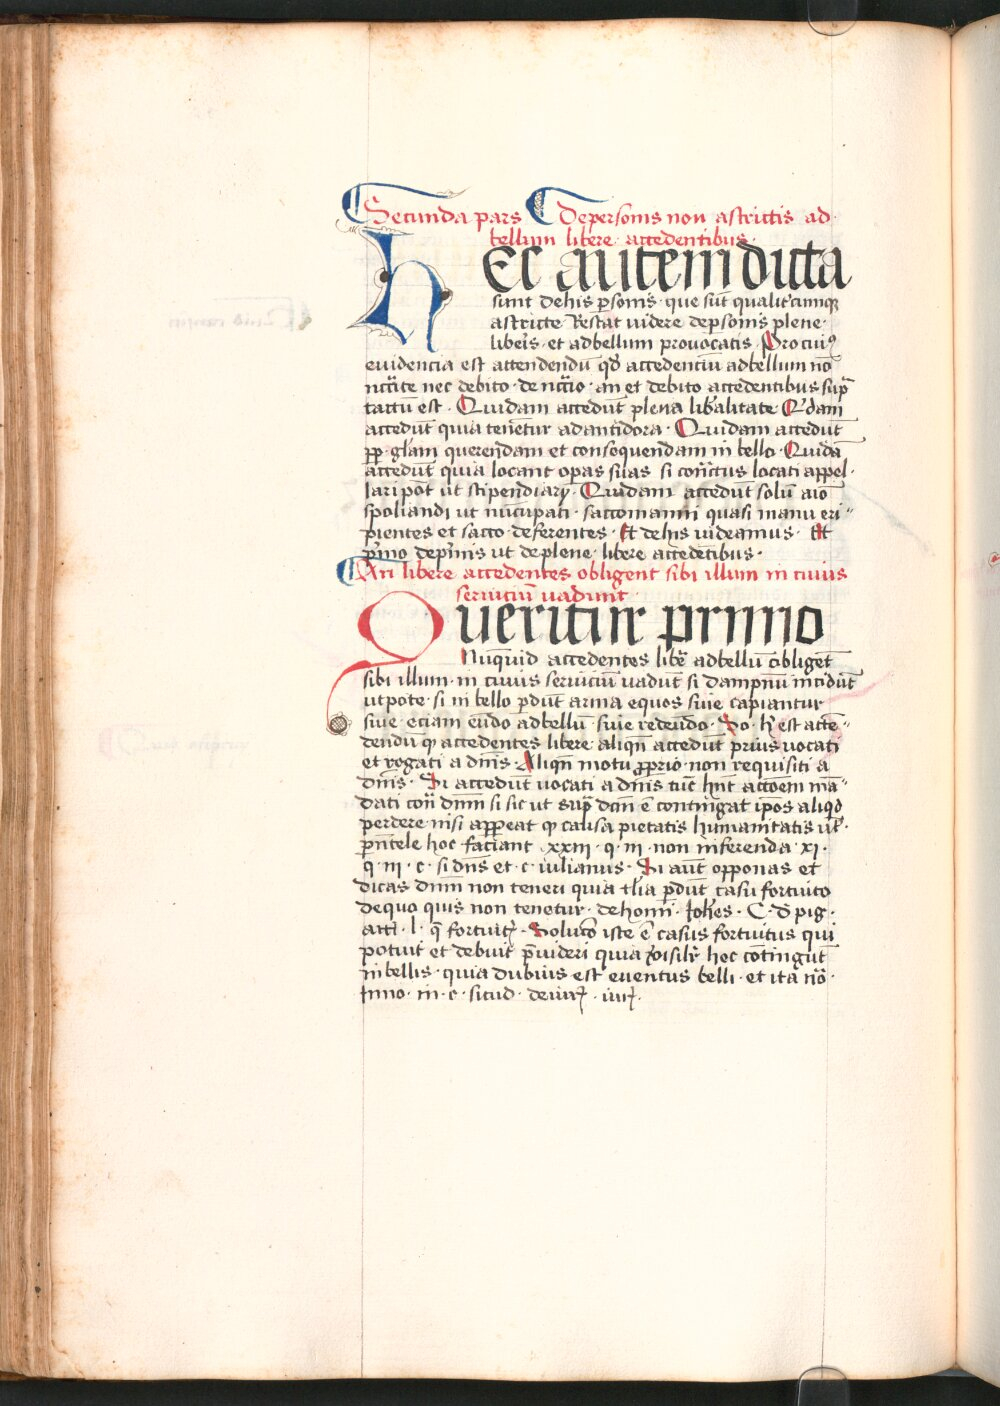 Secunda pars De personis non astrictis ad
bellum libere accedentibus
HEc autem dicta
sunt de his ꝑsonis · que sūt qualitcumqꝫ
astricte Restat videre deꝑsonis plene ·
libeīs · et adbellum provocatis · Pro cuiꝰ
evidencia est attendendū qđ accedenciū adbellum nō
nccāte nec debito · de nccārio · an et debito accedentibus sup̄
tactū est · Quidam accedūt plena libalitate Qdam
accedūt quia tenētur ad antidora · Quidam accedūt
ꝓp̄ · glam querendam et consequendam in bello · Quidā
accedūt quia locant opas suas si conctus locati appel
lari pōt ut stipendiarÿ · Quidam accedūt solū aīo
spoliandi ut nūcupati · saccomanni quasi manu eri
pientes et sacco deferentes · Et de his videamus · Et
pīmo depīmis ut de plene · libere accedētibus ·
An libere accedentes obligent sibi illum in cuius
serviciū vadunt
Queritur primo
Nūquid accedentes libē adbellū obligent
sibi illum · in cuius serviciū vadūt si dampnū incidūt
utpote · si in bello ꝑdūt arma equos sive capiantur
sive · eciam eūdo adbellū sive redeūdo · So · h̄ est atte
dendū ꝙ accedentes libere aliqn̄ accedūt prius vocati
et rogati a dnīs · Aliqn̄ motu ꝓprio · non requisiti a
dnīs · Si accedūt vocati a dnīs tūc hnt actōem mā
dati con dnm si sic ut sup̄ dcm ē contingat ip̄os aliqo
perdere nisi appeat ꝙ causa pietatis humanitatis vl ·
pntele hoc faciant · xxiii · q · iii · non inferenda · xi ·
q · iii · c · si dn̄s et · c · iulianus · Si aūt opponas et
dicas dnm non teneri quia tlia ꝑdūt casu fortuito
de quo quis non tenetur · de homī · Johes · C · d pig ·
acti · l · q̄ fortuit · Solucō iste ē casus fortuitus qui
potuit et debuit p̄videri quia hoc cōtingūt
in bellis · quia dubius est eventus belli · et ita nō ·
Inno · in · c · sicud · de iure · iur ·